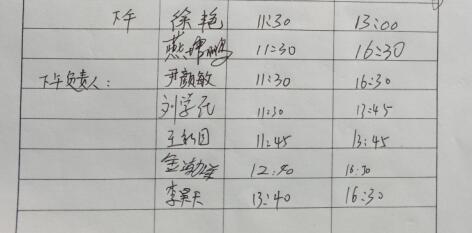 下午 徐艳 11:30 13:00
燕 鹏 11:30 16:30
下午负责人: 尹颜敏 11:30 16:30
刘学民 11:30 13:45
王新国 11:45 13:45
金 12:40 16:30
李昊天 13:40 16:30